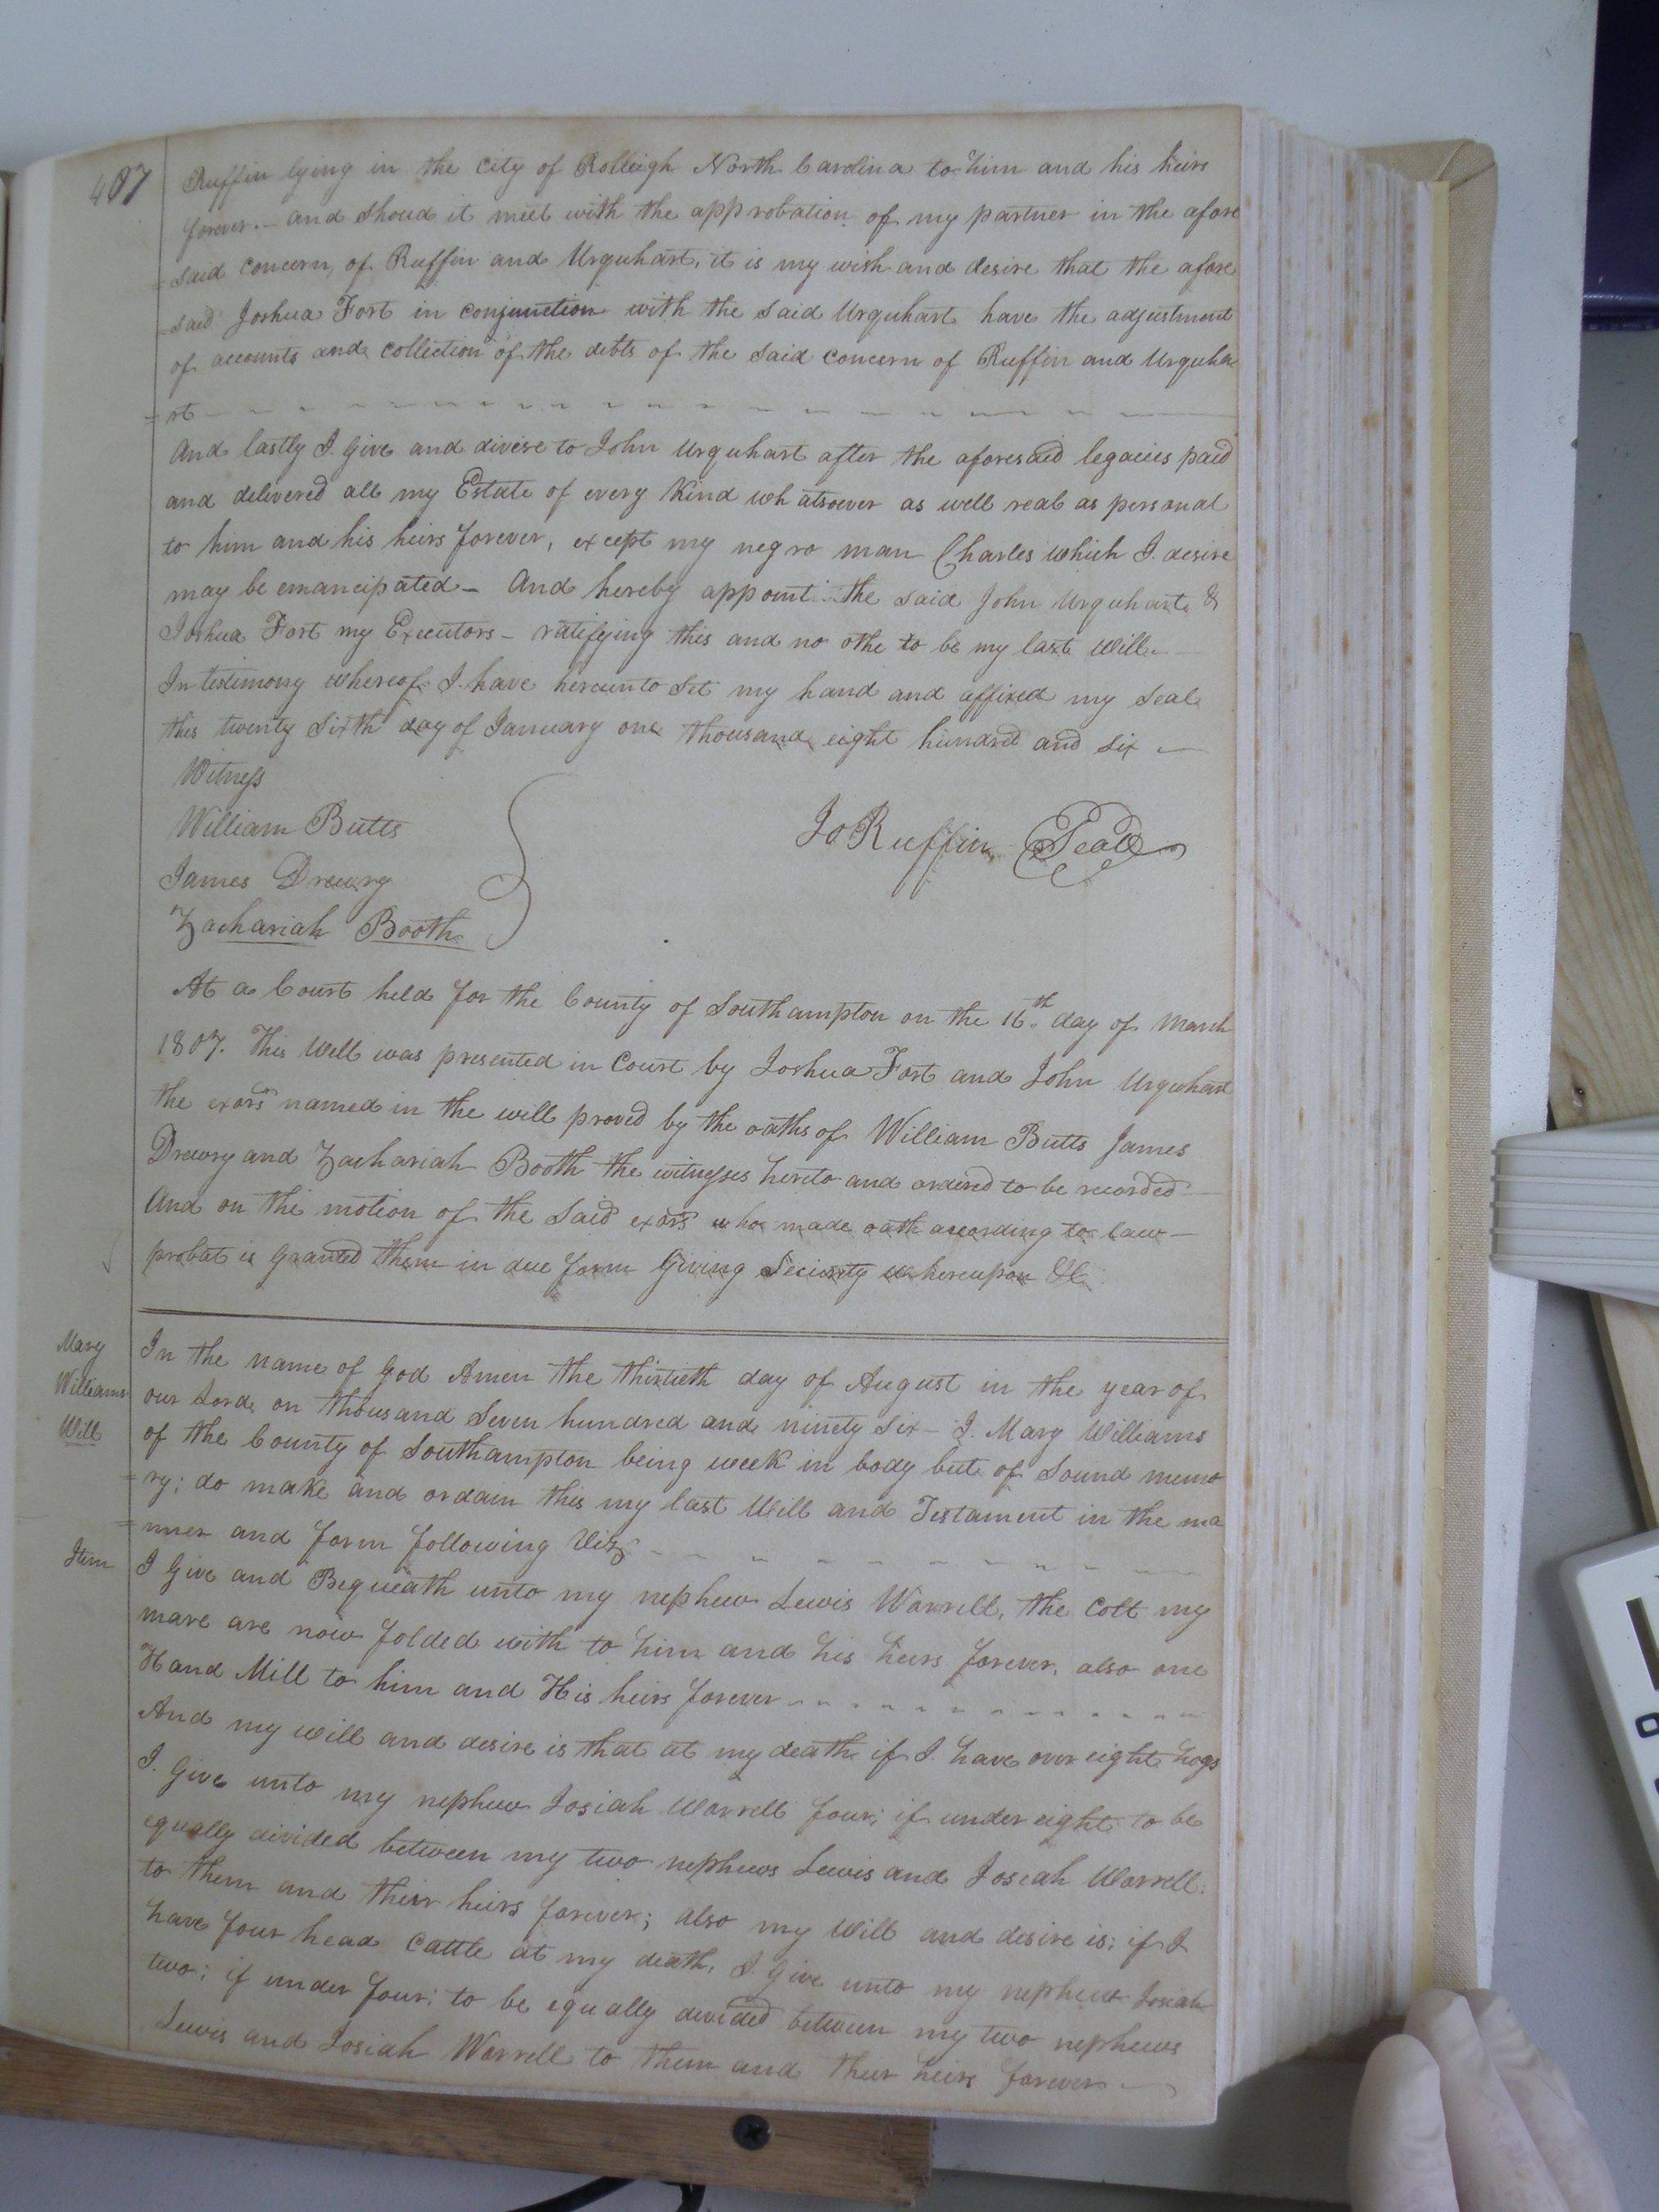 407
Ruffin lying in the City of Rolleigh North Carolina to him and his heirs
forever.- and shoud it meet with the approbation of my partner in the afore
=said concern, of Ruffin and Urquhart, it is my wish and desire that the afore
=said Joshua Fort in conjunction with the said Urquhart have the adjustment
of accounts and collection of the debts of the said concern of Ruffin and Urquha
=rt
And lastly I. Give and divise to John Urquhart after the aforesaid legacies paid
and delivered all my Estate of every Kind whatsoever as well real as personal
to him and his heirs forever, except my negro man Charles which I. desire
may be emancipated- And hereby appoint the said John Urquhart &
Joshua Fort my Executors- ratifying this and no othe to be my last Will.
In testimony whereof I. have hereunto set my hand and affixed my seal
this twenty sixth day of January one thousand eight hundred and six
Witness
William Butts
James Drewry
Zachariah Booth
Jo Ruffin Seal
At a Court held for the County of Southampton on the 16th day of March
1807. This Will was presented in Court by Joshua Fort and John Urquhart
the exors named in the will proved by the oaths of William Butts James
Drewry and Zachariah Booth the witnesses hereto and ordered to be recorded
And on the motion of the said exors who made oath according to law-
probat is granted them in due form Giving Security whereupon &c
Mary
Williams
Will
In the name of God Amen the thirtieth day of August in the year of
our Lord, on thousand Seven hundred and ninety six- I. Mary Williams
of the County of Southampton being week in body but of Sound memo
=ry; do make and ordain this my last Will and Testament in the ma
=nner and form following Viz
Item
I Give and Bequeath unto my nephew Lewis Worrell, the Colt my
mare are now folded with to him and his heirs forever, also one
Hand Mill to him and His heirs forever
And my will and desire is that at my death if I. have over eight hogs
I. Give unto my nephew Josiah Worrell four; if under eight to be
equally divided between my two nephews Lewis and Josiah Worrell:
to them and their heirs forever; also my Will and desire is; if I
have four head Cattle at my death, I. give unto my nephew Josiah
two; if under four: to be equally devided between my two nephews
Lewis and Josiah Worrell to them and their heirs forever